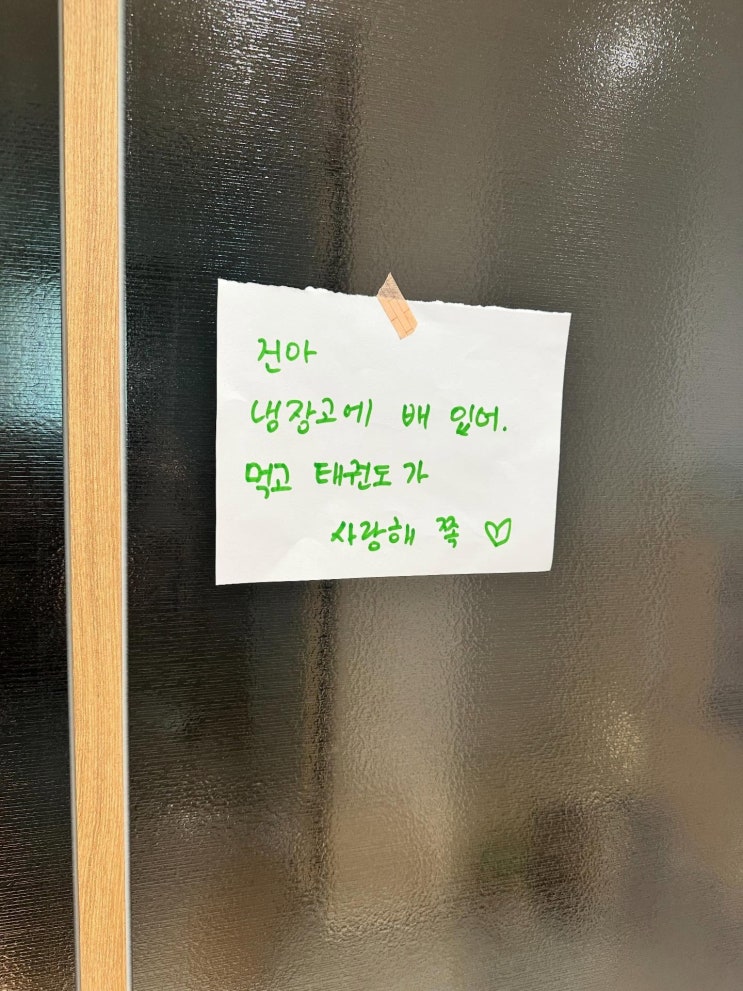 건아
냉장고에 배 있어.
먹고 태권도 가
사랑해 쪽 ♡